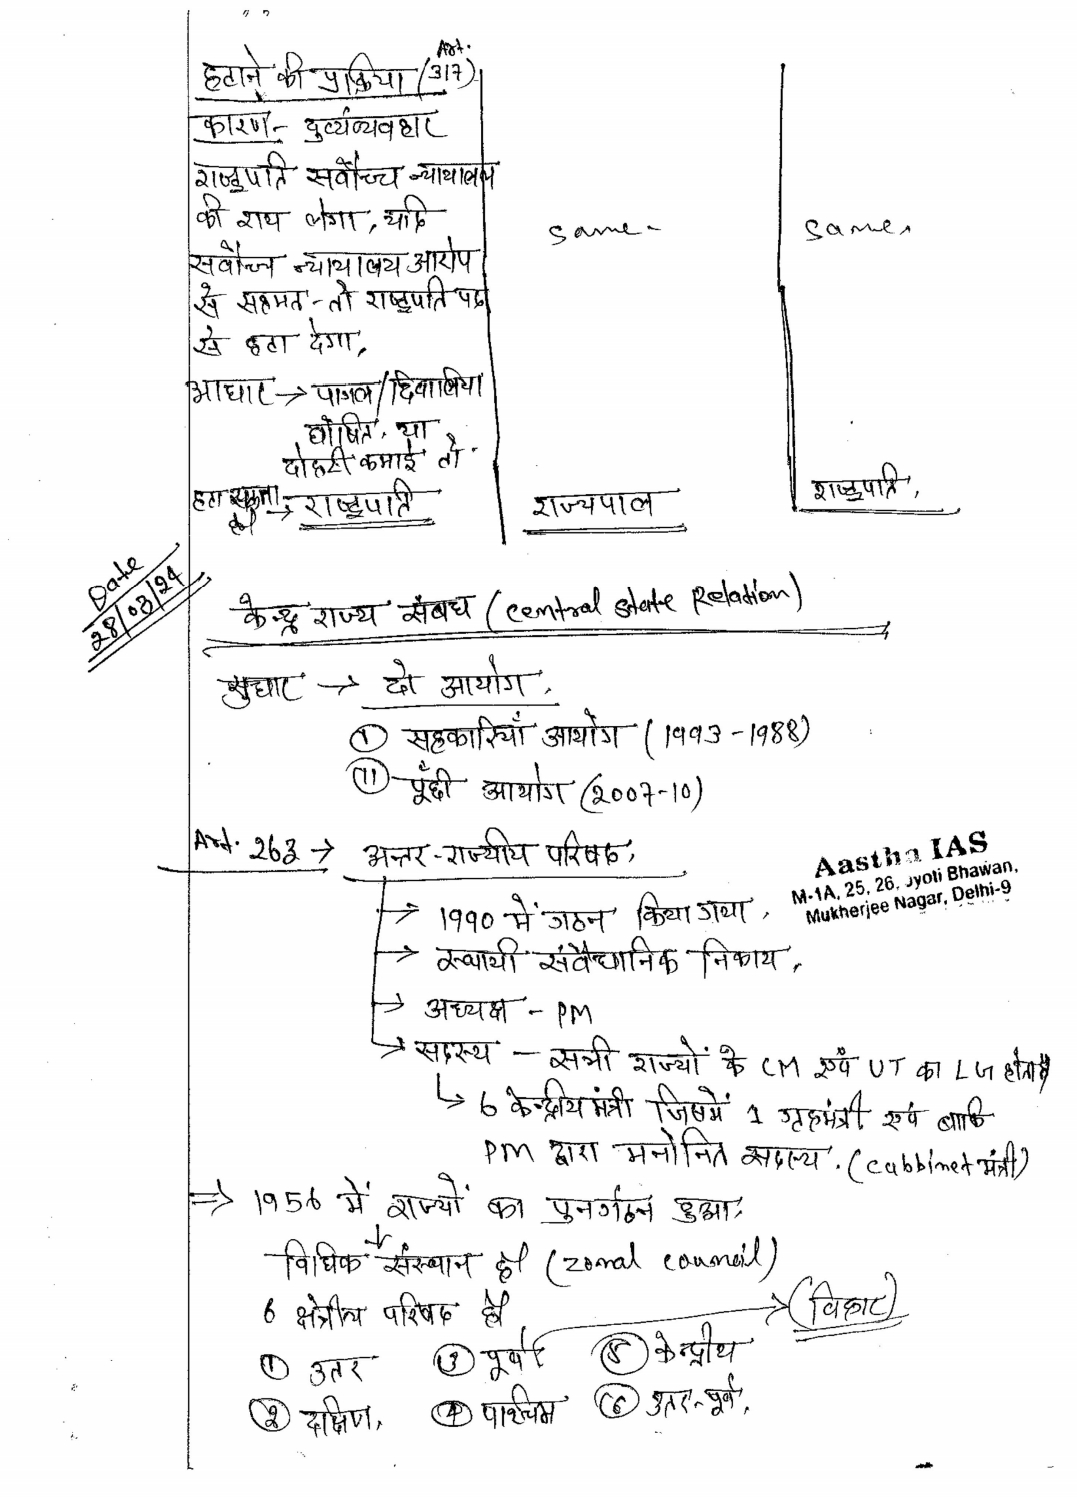 Art.
हटाने की प्रक्रिया (317)
कारण - दुर्व्यव्यवहार
राष्ट्रपति सर्वोच्च न्यायालय
की राय लेगा, यदि
सर्वोच्च न्यायालय आरोप
से सहमत - तो राष्ट्रपति पद
से हटा देगा,
same -
same,
आधार → पागल/दिवालिया
घोषित, या
दोहरी कमाई तो
हटा सकता है → राष्ट्रपति
राज्यपाल
राष्ट्रपति,
Date
28/03/24
केन्द्र राज्य संबध (Central State Relation)
सुधार → दो आयोग,
(i) सहकारियाँ आयोग (1993-1988)
(ii) पूँछी आयोग (2007-10)
Art. 263 → अन्तर-राज्यीय परिषद,
Aastha IAS
M-1A, 25, 26, Jyoti Bhawan,
Mukherjee Nagar, Delhi-9
→ 1990 में गठन किया गया,
→ स्थायी संवैधानिक निकाय,
→ अध्यक्ष - PM
→ सदस्य - सभी राज्यों के CM एवं UT का LG होता है
↳ 6 केन्द्रीय मंत्री जिसमें 1 गृहमंत्री एवं बाकि
PM द्वारा मनोनित सदस्य. (cabbinet मंत्री)
⇒ 1956 में राज्यों का पुनर्गठन हुआ,
विधिक संस्थान है (zonal council)
6 क्षेत्रीय परिषद है → (बिहार)
① उतर ③ पूर्व ⑤ केन्द्रीय
② दक्षिण, ④ पाश्चिम ⑥ उतर-पूर्व,